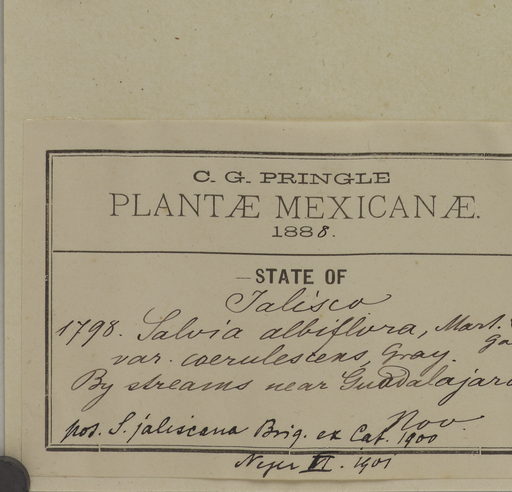 C. G. PRINGLE
PLANTÆ MEXICANÆ.
1888.
STATE OF
Jalisco
1798. Salvia albiflora, Mart.
var. coerulescens, Gray.
By streams near Guadalajar
Nov.
pos. S. jaliscana Briq. ex Cat. 1900
VI. 1901